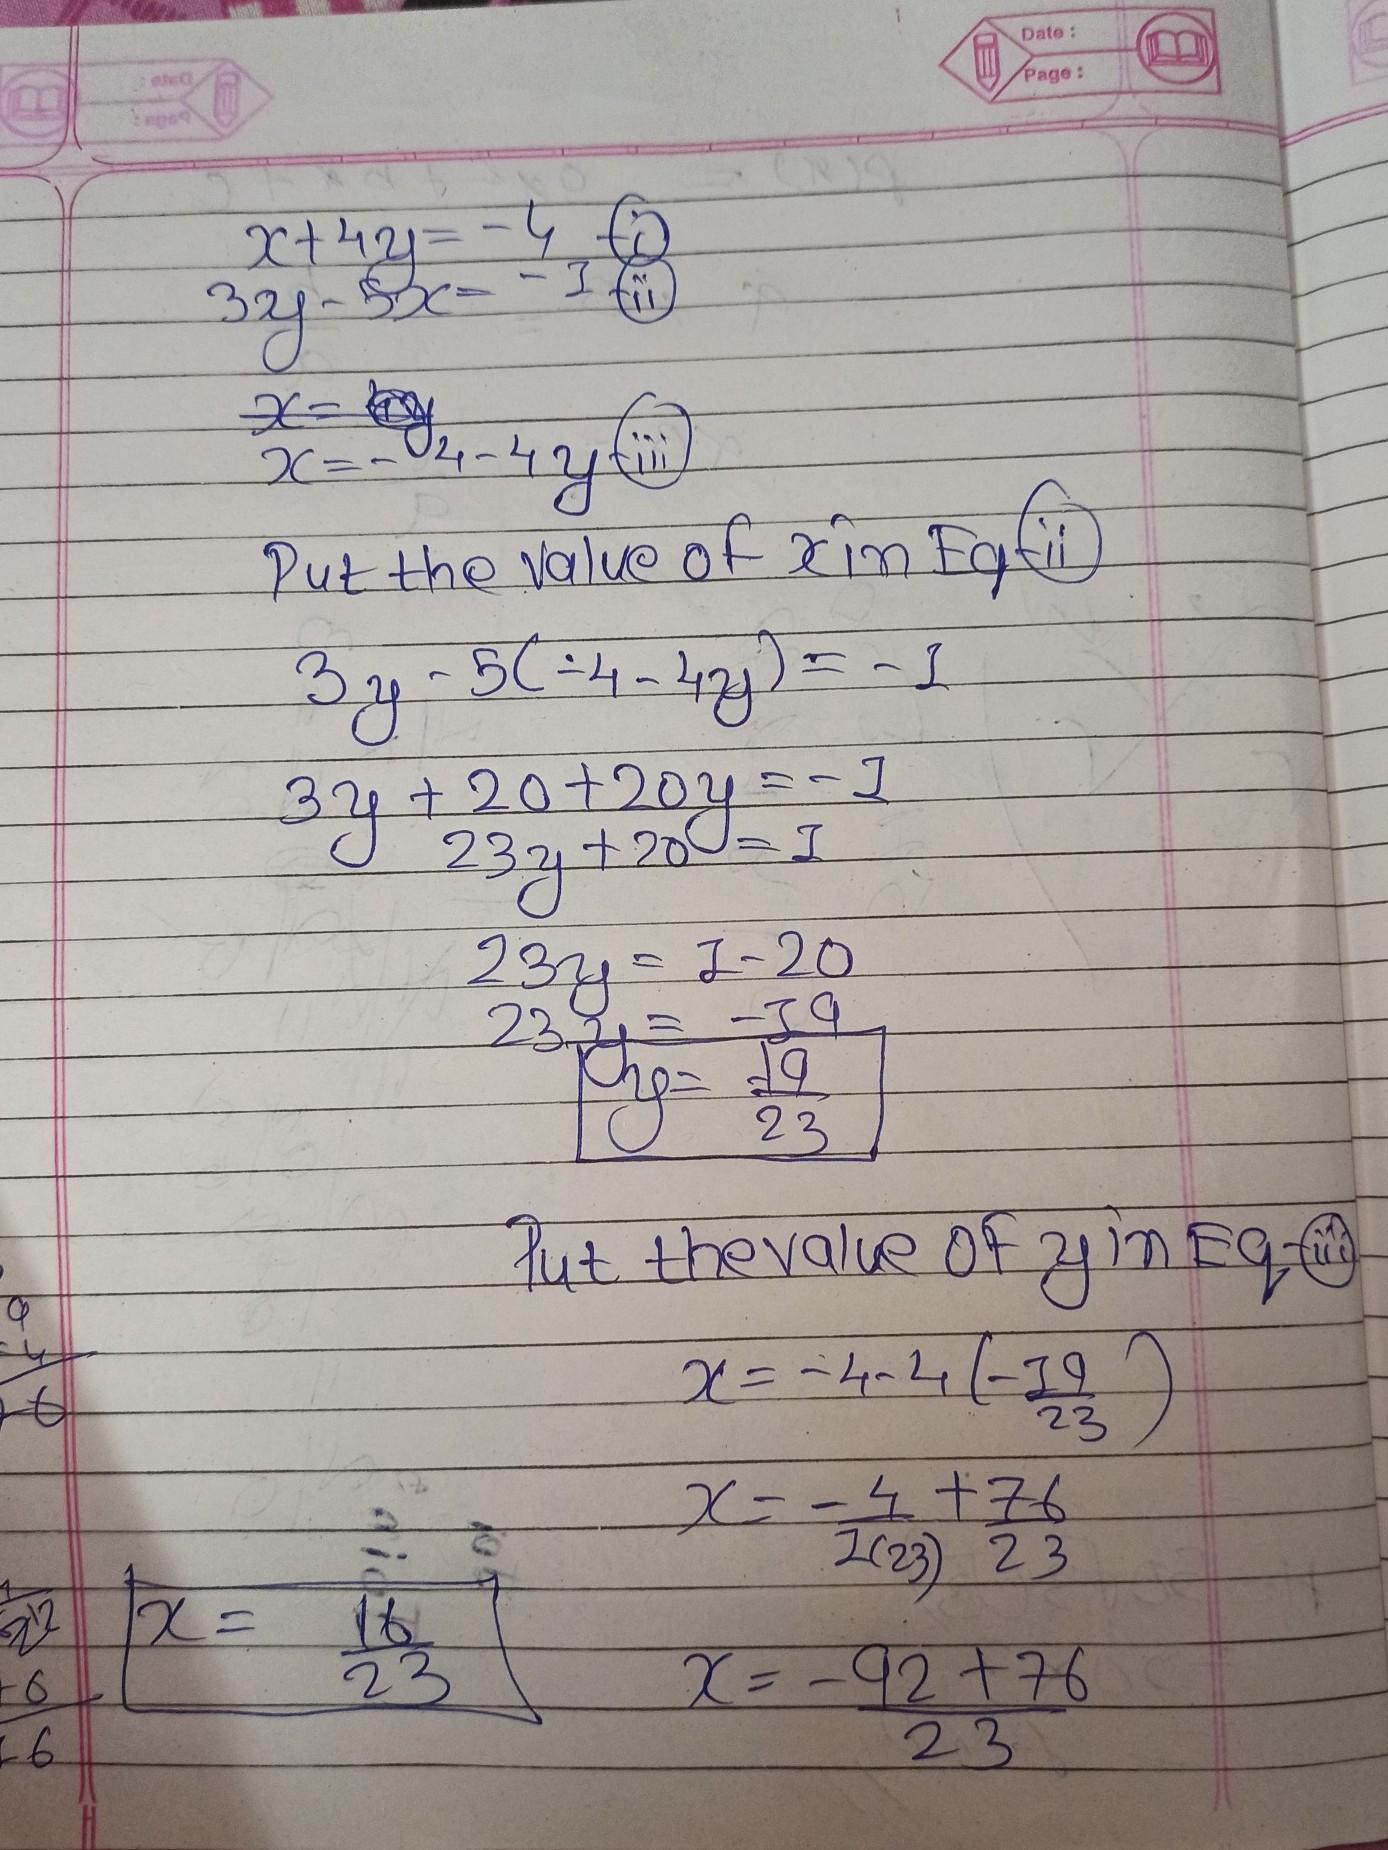 Date :
Page :
x + 4y = -4 - (i)
3y - 5x = -1 - (ii)
x =
x = -4 - 4y - (iii)
Put the value of x in Eq - (ii)
3y - 5(-4 - 4y) = -1
3y + 20 + 20y = -1
23y + 20 = 1
23y = 1 - 20
23y = -19
y = -19/23
Put the value of y in Eq - (iii)
x = -4 - 4(-19/23)
x = -4/1(23) + 76/23
x = -92 + 76/23
x = 16/23